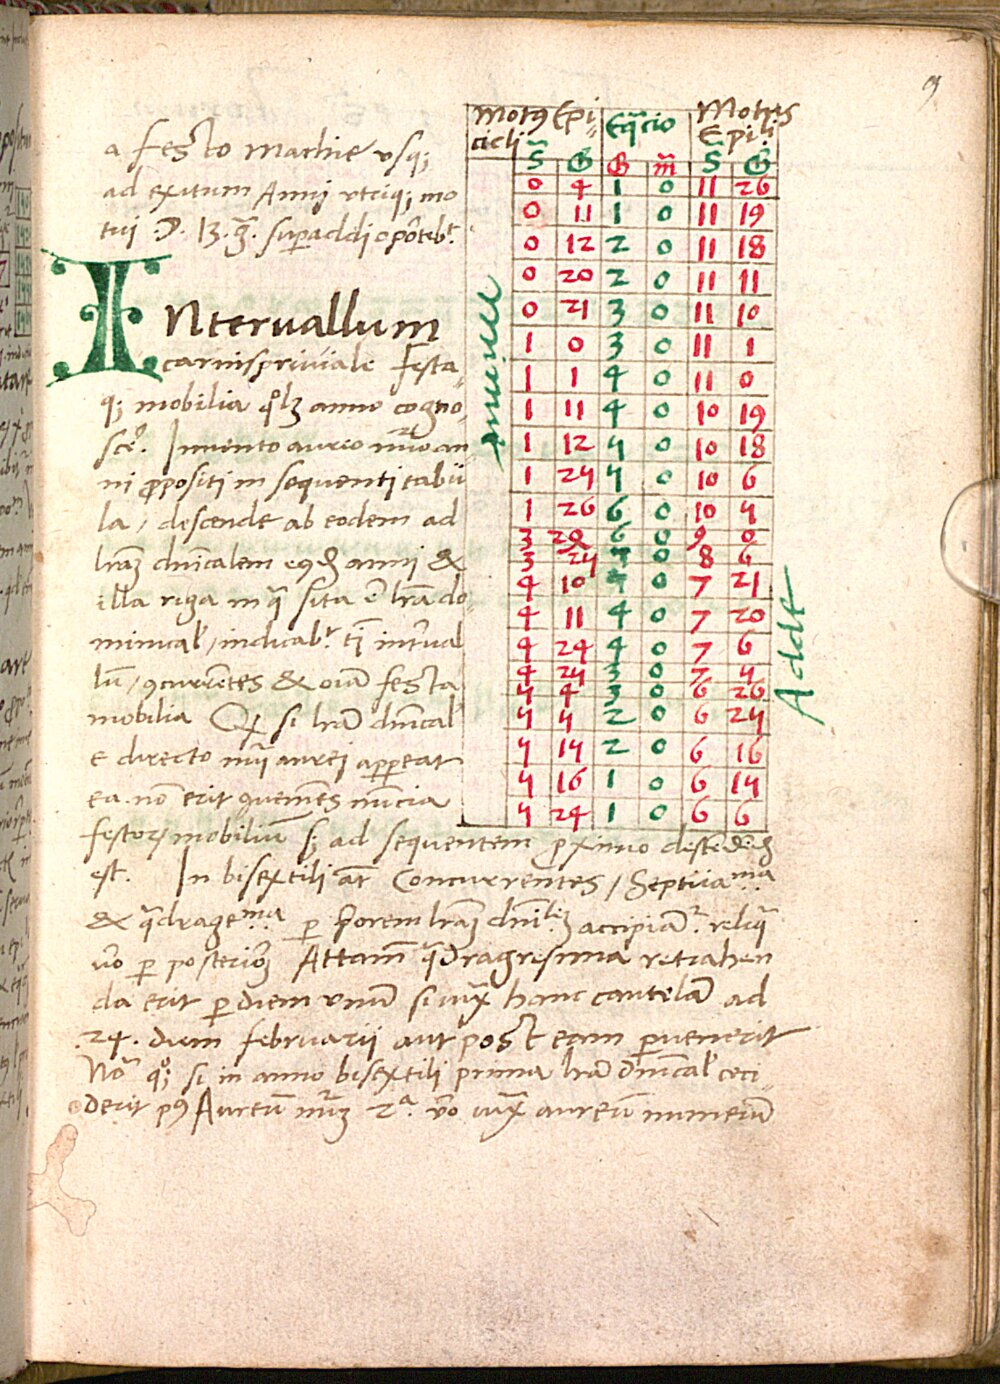 9
a festo mathie vsq;
ad exitum Anni vtriq; mo
tui D. 13. g̃. superaddi oportebᵗ.
INteruallum
carnispriuiale festa
q; mobilia q̊lꝫ anno cogno
sceͬ. Inuento aureo nūo an
ni propositi in sequenti tabu
la, descende ab eodem ad
lr̃aꝫ dn̄icalem eiꝰdꝫ anni &
illa riga in q̃ sita ē lr̃a do
minicalˢ, indicabᵗ. tͥ interual
lū, ꝯcurrentes & oīa festa
mobilia Qͥ si lr̃a dn̄icalˢ
e directo nūi aurei appareat
ea non erit ꝯueniens nūcia
festoꝝ mobiliū sꝫ ad sequentem proximo descēdēdꝫ
est. In bisextili aūt Concurrentes, Septuaᵐᵃ
& q̃drageᵐᵃ per priorem lr̃aꝫ dn̄ilꝫ accipianᵗ. reliq̃
v̊o per posterioꝫ Attamē q̃Dragesima retrahen
da erit per diem vnū si iuxᵃ hanc cautelā ad
.24. diem februarii aut post eam peruenerit
No͂ qꝫ si in anno bisextili prima lr̃a dn̄icalˢ ceci
derit pꝰ Aureū nūꝫ 2ᵃ. v̊o iuxᵃ aureū numerū
Motꝰ Epi
cicli
Eq̃cio
Motus
Epili
S̃ G̃ G m̃ S̃ G̃
0 4 1 0 11 26
0 11 1 0 11 19
0 12 2 0 11 18
0 20 2 0 11 11
0 21 3 0 11 10
1 0 3 0 11 1
1 1 4 0 11 0
1 11 4 0 10 19
1 12 4 0 10 18
1 24 4 0 10 6
1 26 6 0 10 4
3 28 6 0 9 0
3 24 4 0 8 6
4 10 4 0 7 21
4 11 4 0 7 20
4 24 4 0 7 6
4 24 3 0 7 4
4 4 3 0 6 26
4 4 2 0 6 24
4 14 2 0 6 16
4 16 1 0 6 14
4 24 1 0 6 6
minue
Adde